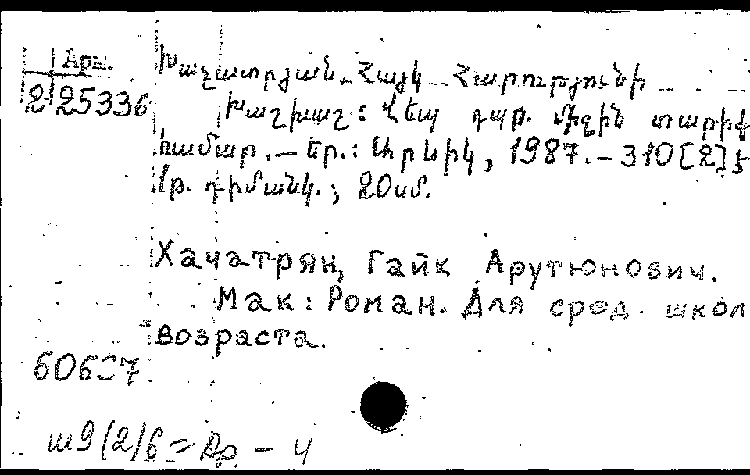 Арм.
2 25336
Խաչատրյան, Հայկ Հարությունի
Խաշխաշ: Վեպ դպր. միջին տարիք
համար.— Եր.: Արևիկ, 1987.— 310[2] է
1 թ. դիմանկ.; 20սմ.
Хачатрян, Гайк Арутюнович.
Мак: Роман. Для сред. школ
возраста.
ա9(2)6 = Др. — 4